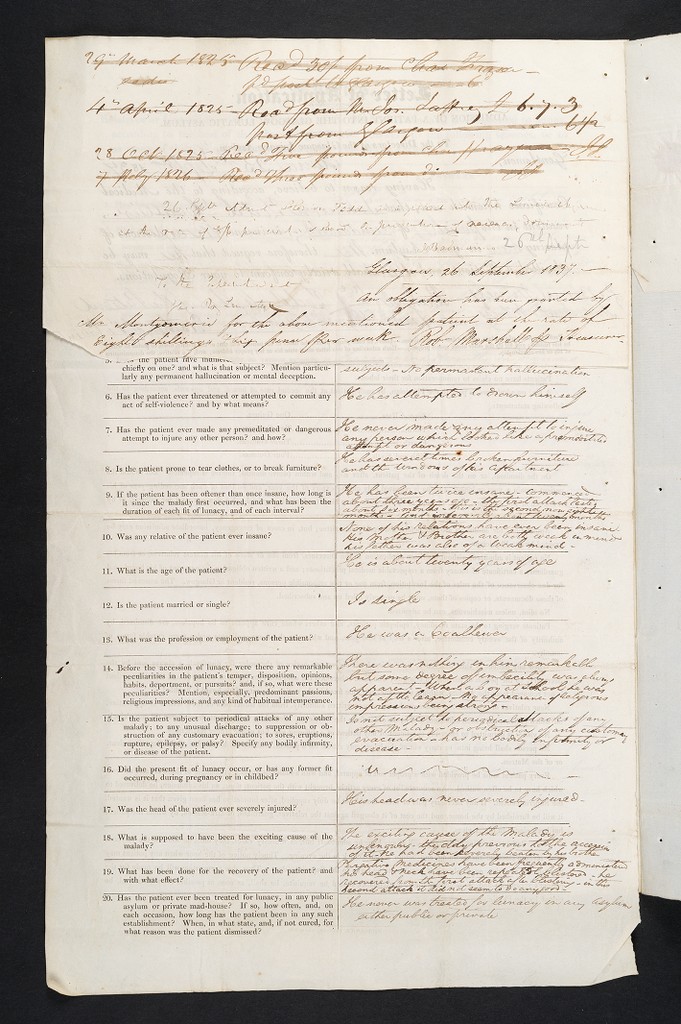 29th March 1825 Read 30/ from
4th April 1825 Read from Mr Jos. £ 6.7.3
post from Glasgow 6/2
28 Oct 1825 Read Five pounds from
7 1826 Read Three pounds from do
at the rate of per
26th Sept
Glasgow 26 September 1837
To the
An obligation has been granted by
Mr Montgomerie for the above mentioned patient at the rate of
Eight shillings & six pence per week. Rob Marshall Treasurer
is the patient five
chiefly on one? and what is that subject? Mention particu-
larly any permanent hallucination or mental deception.
subject - No permanent hallucination
6. Has the patient ever threatened or attempted to commit any
act of self-violence? and by what means?
He has attempted to drown himself
7. Has the patient ever made any premeditated or dangerous
attempt to injure any other person? and how?
He never made any attempt to injure
any person which looked like a premeditated
attempt or dangerous
8. Is the patient prone to tear clothes, or to break furniture?
He has several times broken furniture
and the windows of his apartment
9. If the patient has been oftener than once insane, how long is
it since the malady first occurred, and what has been the
duration of each fit of lunacy, and of each interval?
He has been twice insane - commenced
about three years ago - the first attack lasted
about six months - this is the second now eight
months - first interval about twenty months
10. Was any relative of the patient ever insane?
None of his relations have ever been insane
His Mother & Brother are both weak in mind
his father was also of a weak mind -
11. What is the age of the patient?
He is about twenty years of age
12. Is the patient married or single?
Is single
13. What was the profession or employment of the patient?
He was a Coalhewer
14. Before the accession of lunacy, were there any remarkable
peculiarities in the patient's temper, disposition, opinions,
habits, deportment, or pursuits? and, if so, what were these
peculiarities? Mention, especially, predominant passions,
religious impressions, and any kind of habitual intemperance.
There was nothing in him remarkable
but some degree of imbecility was always
apparent - When a boy at School he was
not of the lesson - No appearance of religious
impressions being strong -
15. Is the patient subject to periodical attacks of any other
malady; to any unusual discharge; to suppression or ob-
struction of any customary evacuation; to sores, eruptions,
rupture, epilepsy, or palsy? Specify any bodily infirmity,
or disease of the patient.
Is not subject to periodical attacks of any
other Malady - or obstruction of any customary
evacuation - has no bodily infirmity or
disease -
16. Did the present fit of lunacy occur, or has any former fit
occurred, during pregnancy or in childbed?
17. Was the head of the patient ever severely injured?
His head was never severely injured -
18. What is supposed to have been the exciting cause of the
malady?
The exciting cause of the Malady is
the day previous to the accession
of it. He had been severely beaten by his brother
19. What has been done for the recovery of the patient? and
with what effect?
Purgative Medicines have been frequently administered
his head & neck have been repeatedly blistered - he
recovered from the first attack after blistering - in this
second attack it did not seem to do any good -
20. Has the patient ever been treated for lunacy, in any public
asylum or private mad-house? If so, how often, and, on
each occasion, how long has the patient been in any such
establishment? When, in what state, and, if not cured, for
what reason was the patient dismissed?
He never was treated for lunacy in any asylum
either public or private